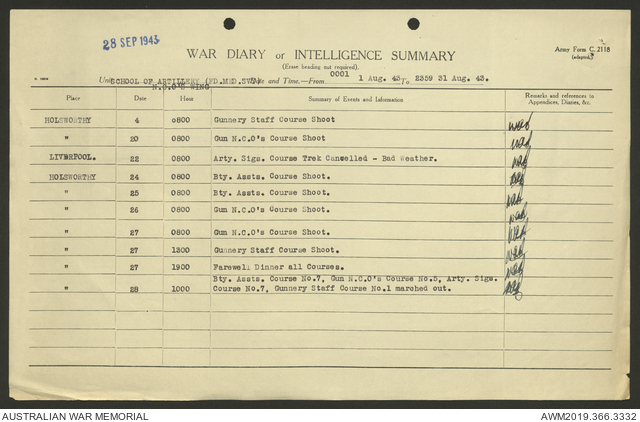 28 SEP 1943
WAR DIARY or INTELLIGENCE SUMMARY
Army Form C. 2118
(adapted.)
(Erase heading not required).
Unit SCHOOL OF ARTILLERY (FD.MED.SVY) Date and Time.—From 0001 1 Aug. 43. To 2359 31 Aug. 43.
N.C.O's WING
Place Date Hour Summary of Events and Information Remarks and references to Appendices, Diaries, &c.
HOLSWORTHY 4 0800 Gunnery Staff Course Shoot
" 20 0800 Gun N.C.O's Course Shoot
LIVERPOOL. 22 0800 Arty. Sigs. Course Trek Canwelled - Bad Weather.
HOLSWORTHY 24 0800 Bty. Assts. Course Shoot.
" 25 0800 Bty. Assts. Course Shoot.
" 26 0800 Gun N.C.O's Course Shoot.
" 27 0800 Gun N.C.O's Course Shoot.
" 27 1300 Gunnery Staff Course Shoot.
" 27 1900 Farewell Dinner all Courses.
Bty. Assts. Course No.7, Gun N.C.O's Course No.5, Arty. Sigs.
" 28 1000 Course No.7, Gunnery Staff Course No.1 marched out.
AUSTRALIAN WAR MEMORIAL
AWM2019.366.3332